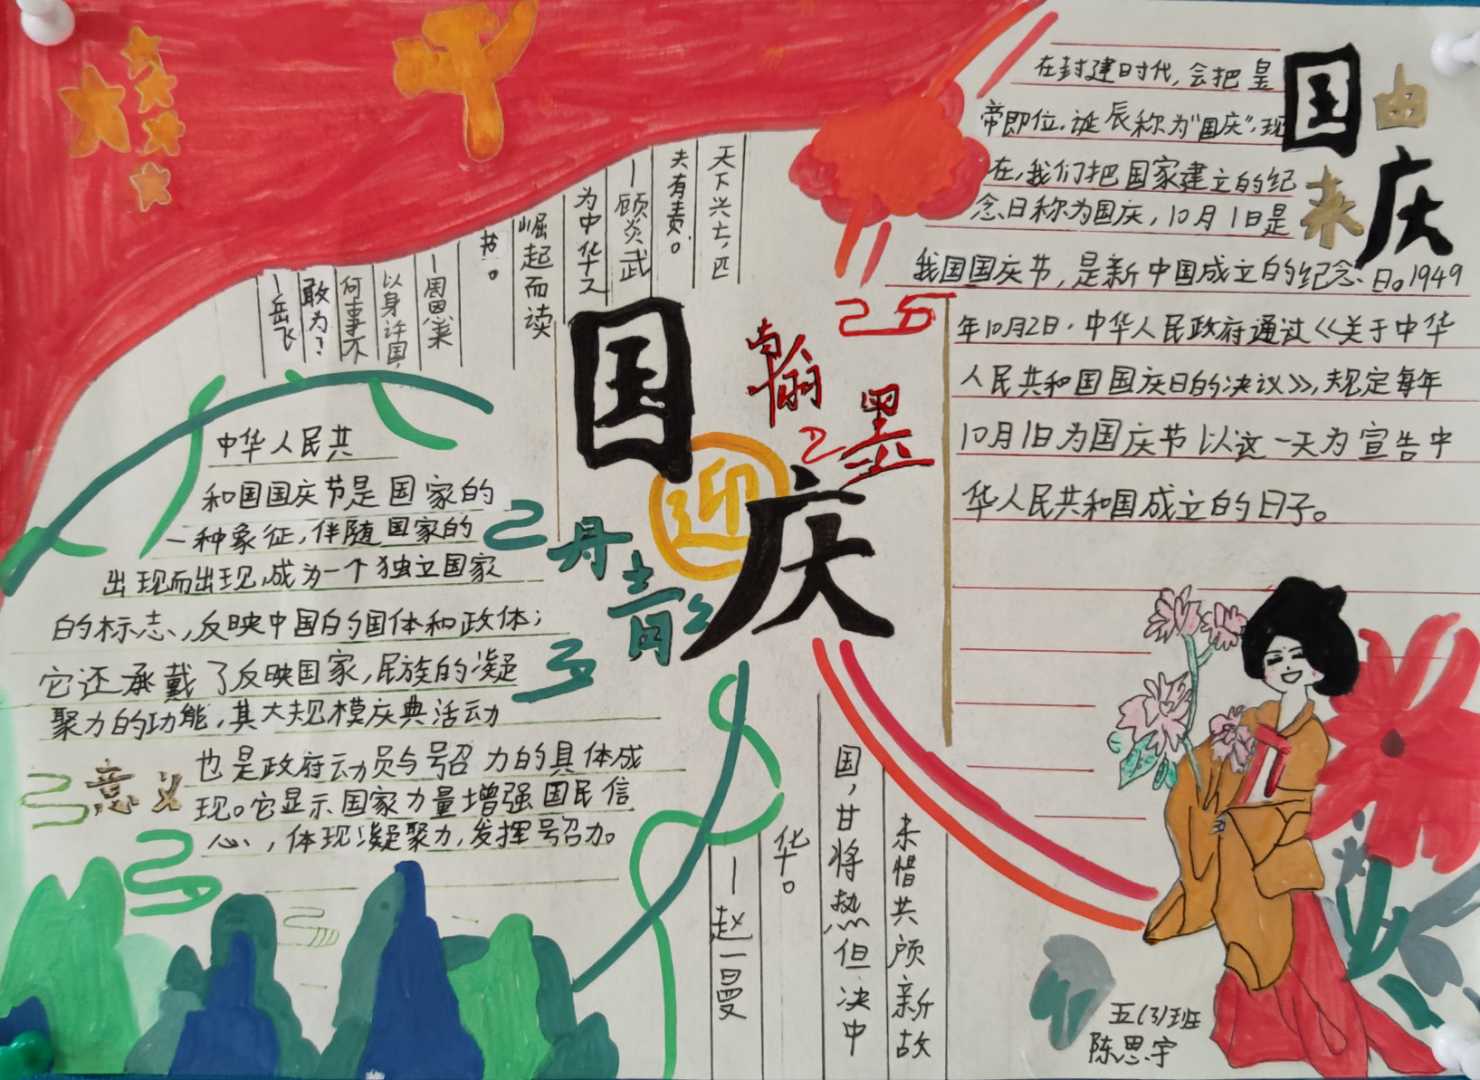 国庆
由来
在封建时代,会把皇
帝即位.诞辰称为"国庆",现
在,我们把国家建立的纪
念日称为国庆,10月1日是
我国国庆节,是新中国成立的纪念日。1949
年10月2日,中华人民政府通过《关于中华
人民共和国国庆日的决议》,规定每年
10月1日为国庆节以这一天为宣告中
华人民共和国成立的日子。
天下兴亡,匹
夫有责。
—顾炎武
为中华之
崛起而读
书。
—周恩来
以身许国,
何事不
敢为?
—岳飞
国庆
迎
翰墨
丹青
中华人民共
和国国庆节是国家的
一种象征,伴随国家的
出现而出现,成为一个独立国家
的标志,反映中国的国体和政体;
它还承载了反映国家,民族的凝
聚力的功能,其大规模庆典活动
也是政府动员与号召力的具体成
现。它显示国家力量增强国民信
心,体现凝聚力,发挥号召力。
意义
未惜共颅新故
国,甘将热但决中
华。
—赵一曼
五(3)班
陈思宇